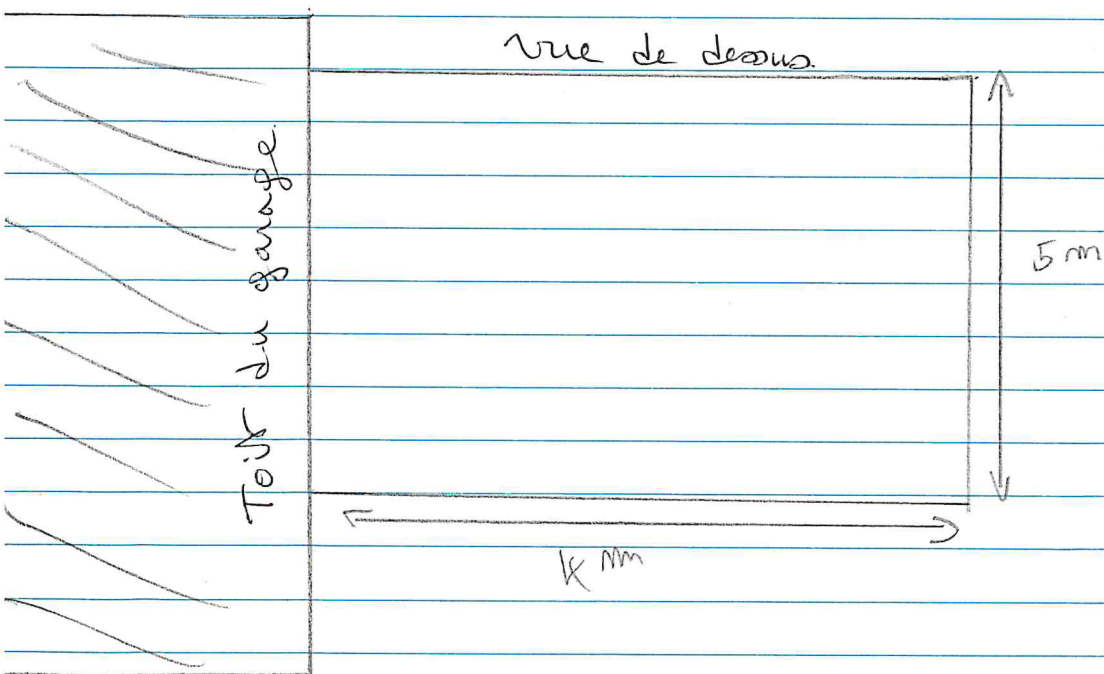 vue de dessus.
Toit du garage.
5 m
4 m